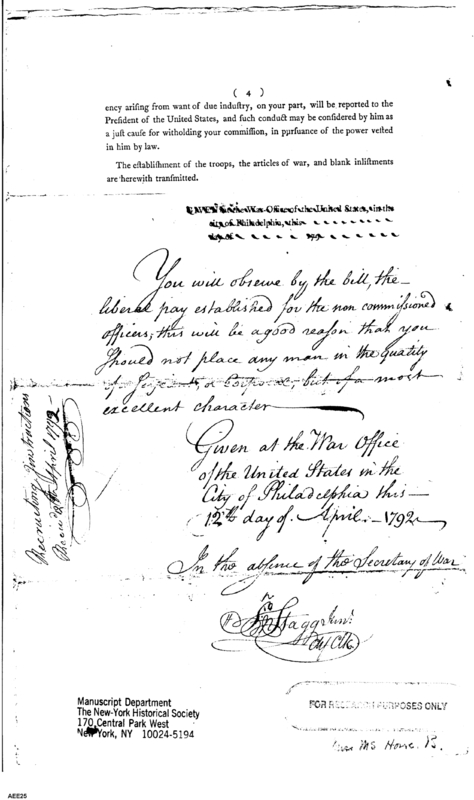 ( 4 )
ency ariſing from want of due induſtry, on your part, will be reported to the
Preſident of the United States, and ſuch conduct may be conſidered by him as
a juſt cauſe for witholding your commiſſion, in purſuance of the power veſted
in him by law.
The eſtabliſhment of the troops, the articles of war, and blank inliſtments
are herewith tranſmitted.
GIVEN at the War-Office of the United States, in the
city of Philadelphia, this
day of 179
You will observe by the bill, the
liberal pay established for the non commissioned
officers; this will be a good reason that you
should not place any man in the quality
of Serjeant, or Corporal, but of a most
excellent character
Given at the War Office
of the United States in the
City of Philadelphia this
12th day of April 1792
In the absence of the Secretary of War
Jno Stagg Junr
Chf Clk
Recruiting Instructions
April 1792
Manuscript Department
The New-York Historical Society
170 Central Park West
New York, NY 10024-5194
FOR RESEARCH PURPOSES ONLY
MS House B.
AEE25